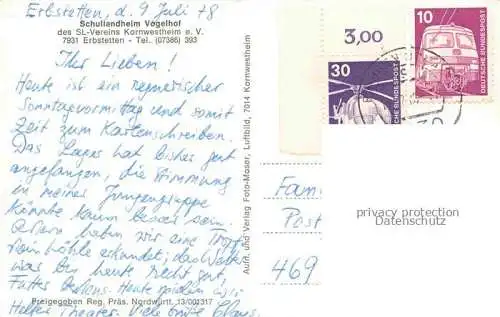 Erbstetten, d. 9 Juli 78
Schullandheim Vogelhof
des SL-Vereins Kornwestheim e. V.
7931 Erbstetten - Tel. (07386) 393
Ihr Lieben!
Heute ist ein regnerischer
Sonntagvormittag und somit
Zeit zum Kartenschreiben.
Das Lager hat bisher gut
angefangen, die Stimmung
in meiner Jungengruppe
könnte kaum besser sein.
haben wir eine Tropf
steinhöhle erkundet, das Wetter
war bis heute recht gut,
Futter
Heute spielen wir
Theater. Viele Grüße Klaus
Freigegeben Reg. Präs. Nordwürtt. 13/001317
Aufn. und Verlag Foto-Moser, Luftbild, 7014 Kornwestheim
3,00
30
DEUTSCHE BUNDESPOST
10
DEUTSCHE BUNDESPOST
Fam
Post
469
privacy protection
Datenschutz